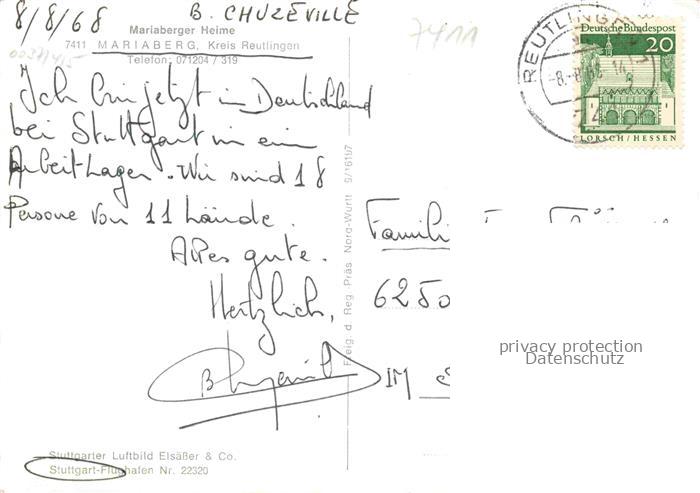 8/8/68 B. CHUZEVILLE
Mariaberger Heime
7411
7411 MARIABERG, Kreis Reutlingen
Telefon: 071204 / 319
Ich bin jetzt in Deutschland
bei Stuttgart in ein
Arbeitlager. Wir sind 18
Persone von 11 Lände.
Alles gute.
Hertzlich,
Familie
6250
IM
REUTLINGEN
-8.-8.68
74
Deutsche Bundespost
20
LORSCH / HESSEN
Freig. d. Reg. Präs Nord-Württ 9/16197
privacy protection
Datenschutz
Stuttgarter Luftbild Elsäßer & Co.
Stuttgart-Flughafen Nr. 22320